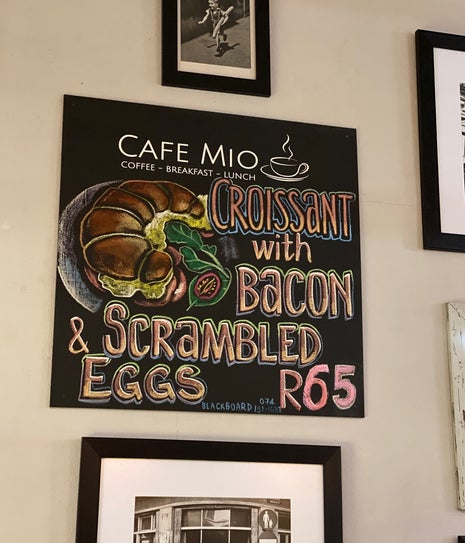 CAFE MIO
COFFEE - BREAKFAST - LUNCH
CROISSANT
with
BACON
& SCRAMBLED
EGGS R65
BLACKBOARD 074